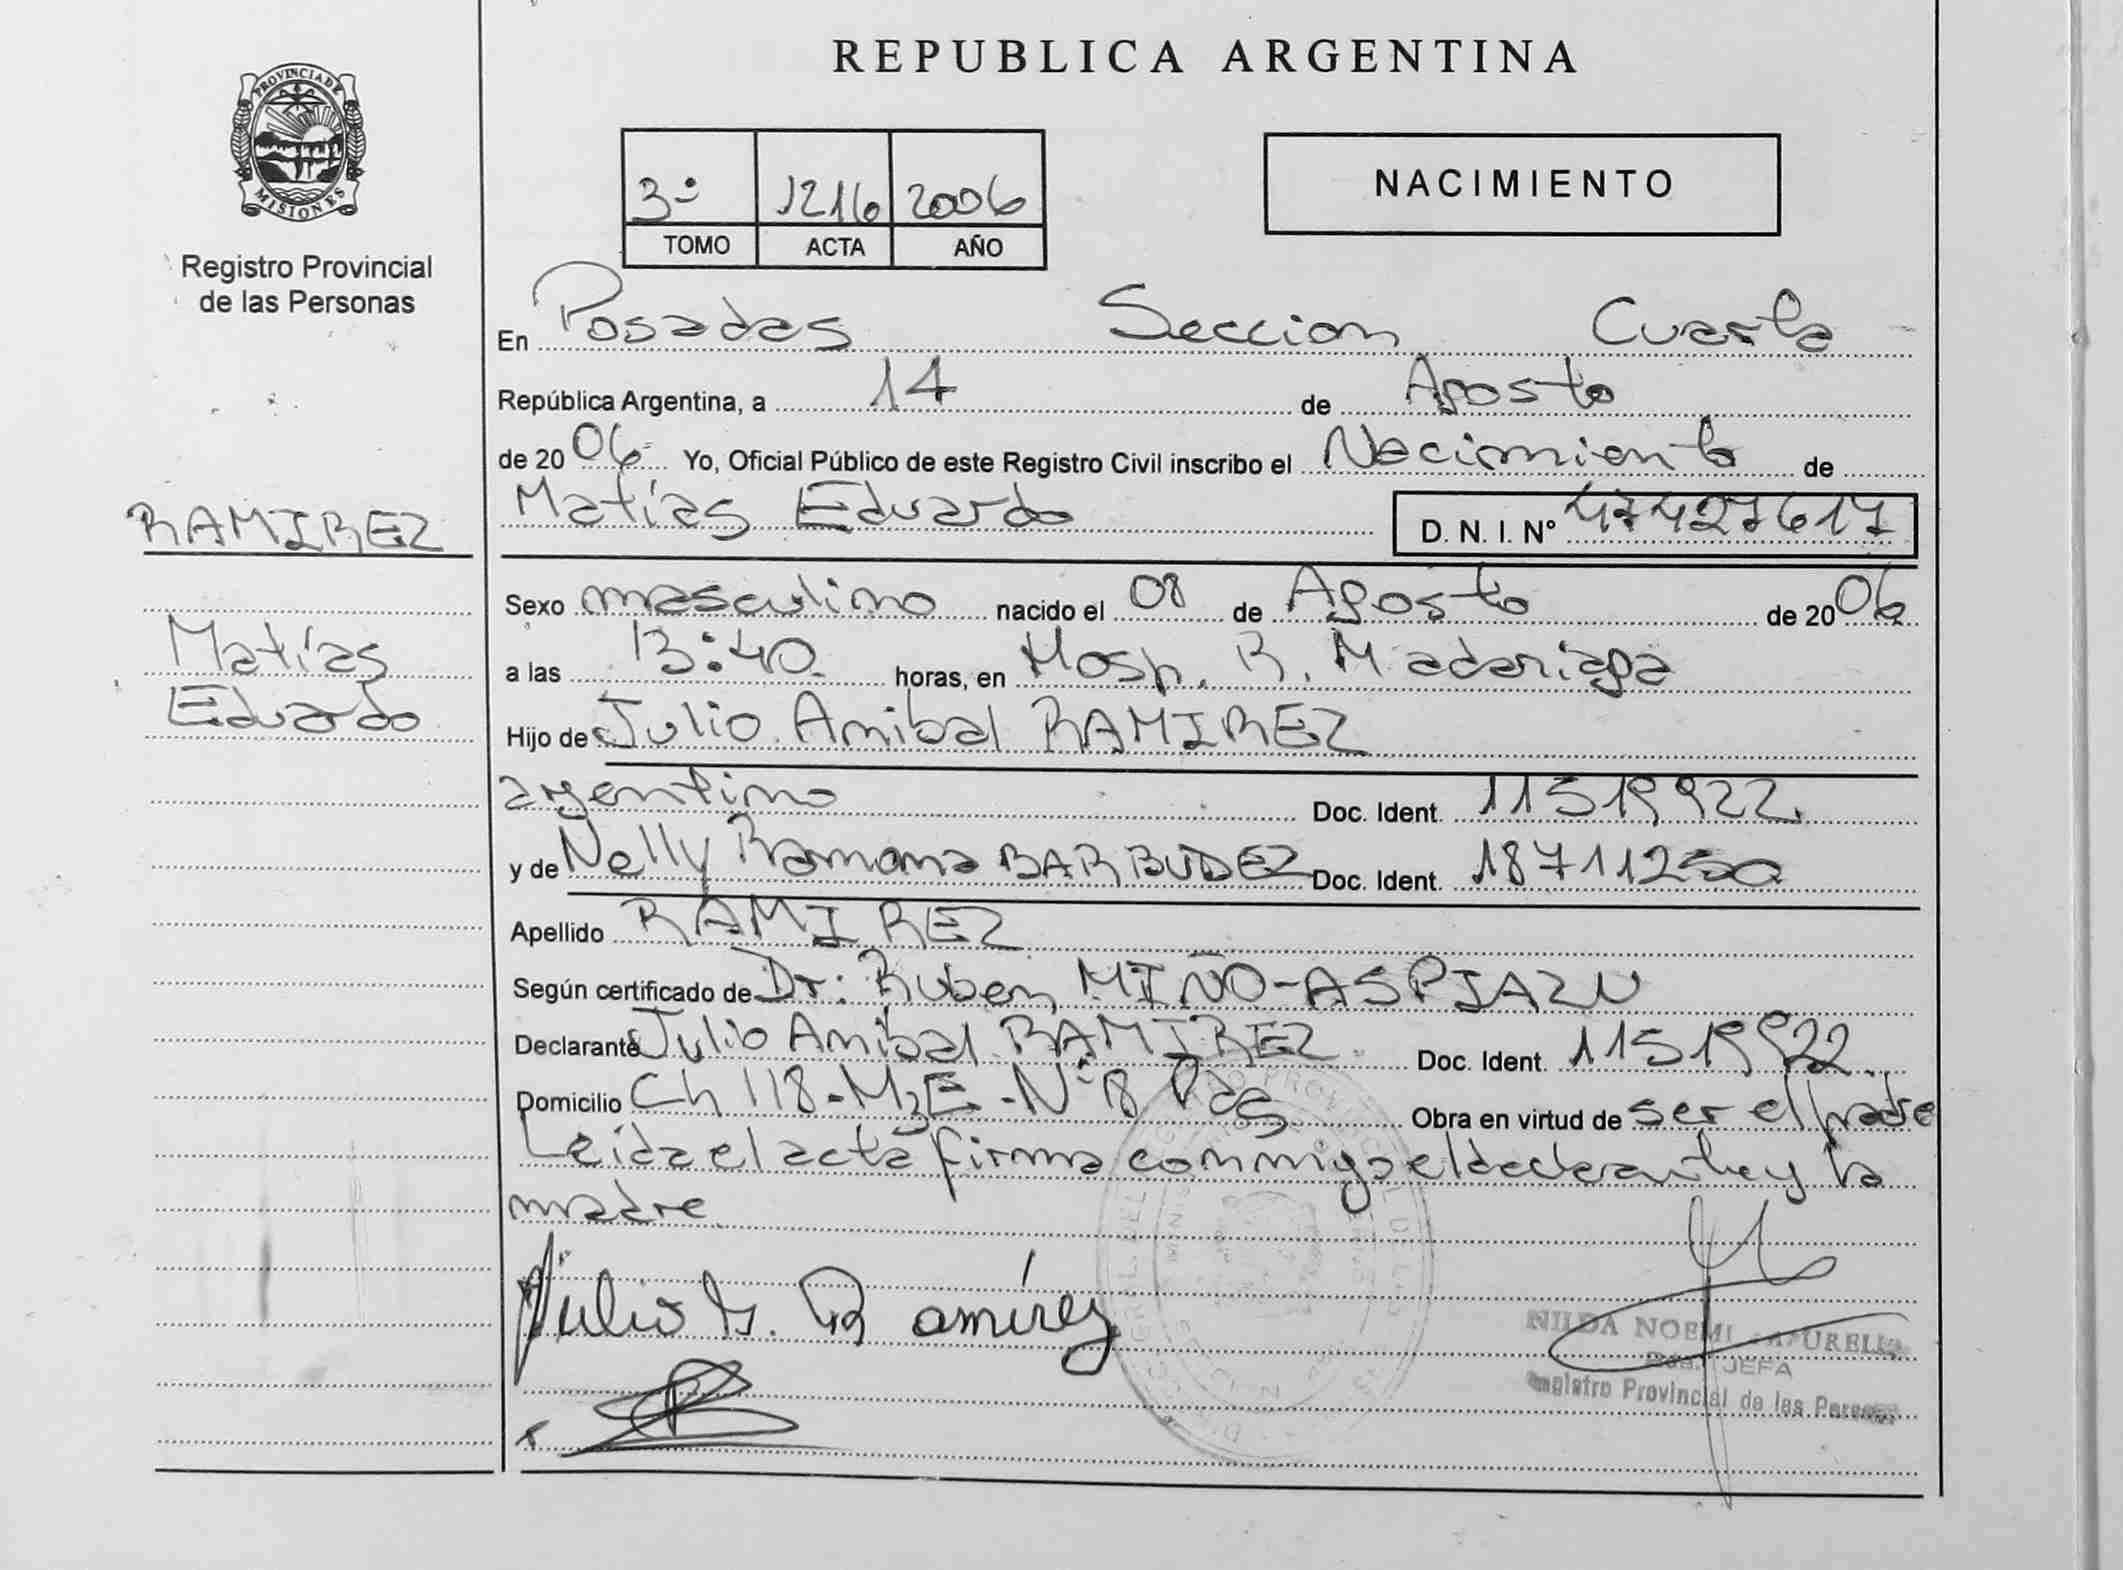 PROVINCIA DE
MISIONES
Registro Provincial
de las Personas
RAMIREZ
Matías
Eduardo
REPUBLICA ARGENTINA
3º 1216 2006
TOMO ACTA AÑO
NACIMIENTO
En Posadas Seccion Cuarta
República Argentina, a 14 de Agosto
de 2006 Yo, Oficial Público de este Registro Civil inscribo el Nacimiento de
Matías Eduardo D. N. I. Nº 47427617
Sexo masculino nacido el 08 de Agosto de 2006
a las 13:40 horas, en Hosp. R. Madariaga
Hijo de Julio Anibal RAMIREZ
argentino Doc. Ident. 11519922
y de Nelly Ramona BARBUDEZ Doc. Ident. 18711250
Apellido RAMIREZ
Según certificado de Dr: Ruben MIÑO-ASPIAZU
Declarante Julio Anibal RAMIREZ Doc. Ident. 11519922
Domicilio Ch 118-Mz E-Nº 8 Pdas Obra en virtud de ser el padre
Leida el acta firma conmigo el declarante y la
madre
Julio A. Ramírez
NILDA NOEMI
JEFA
Registro Provincial de las Personas